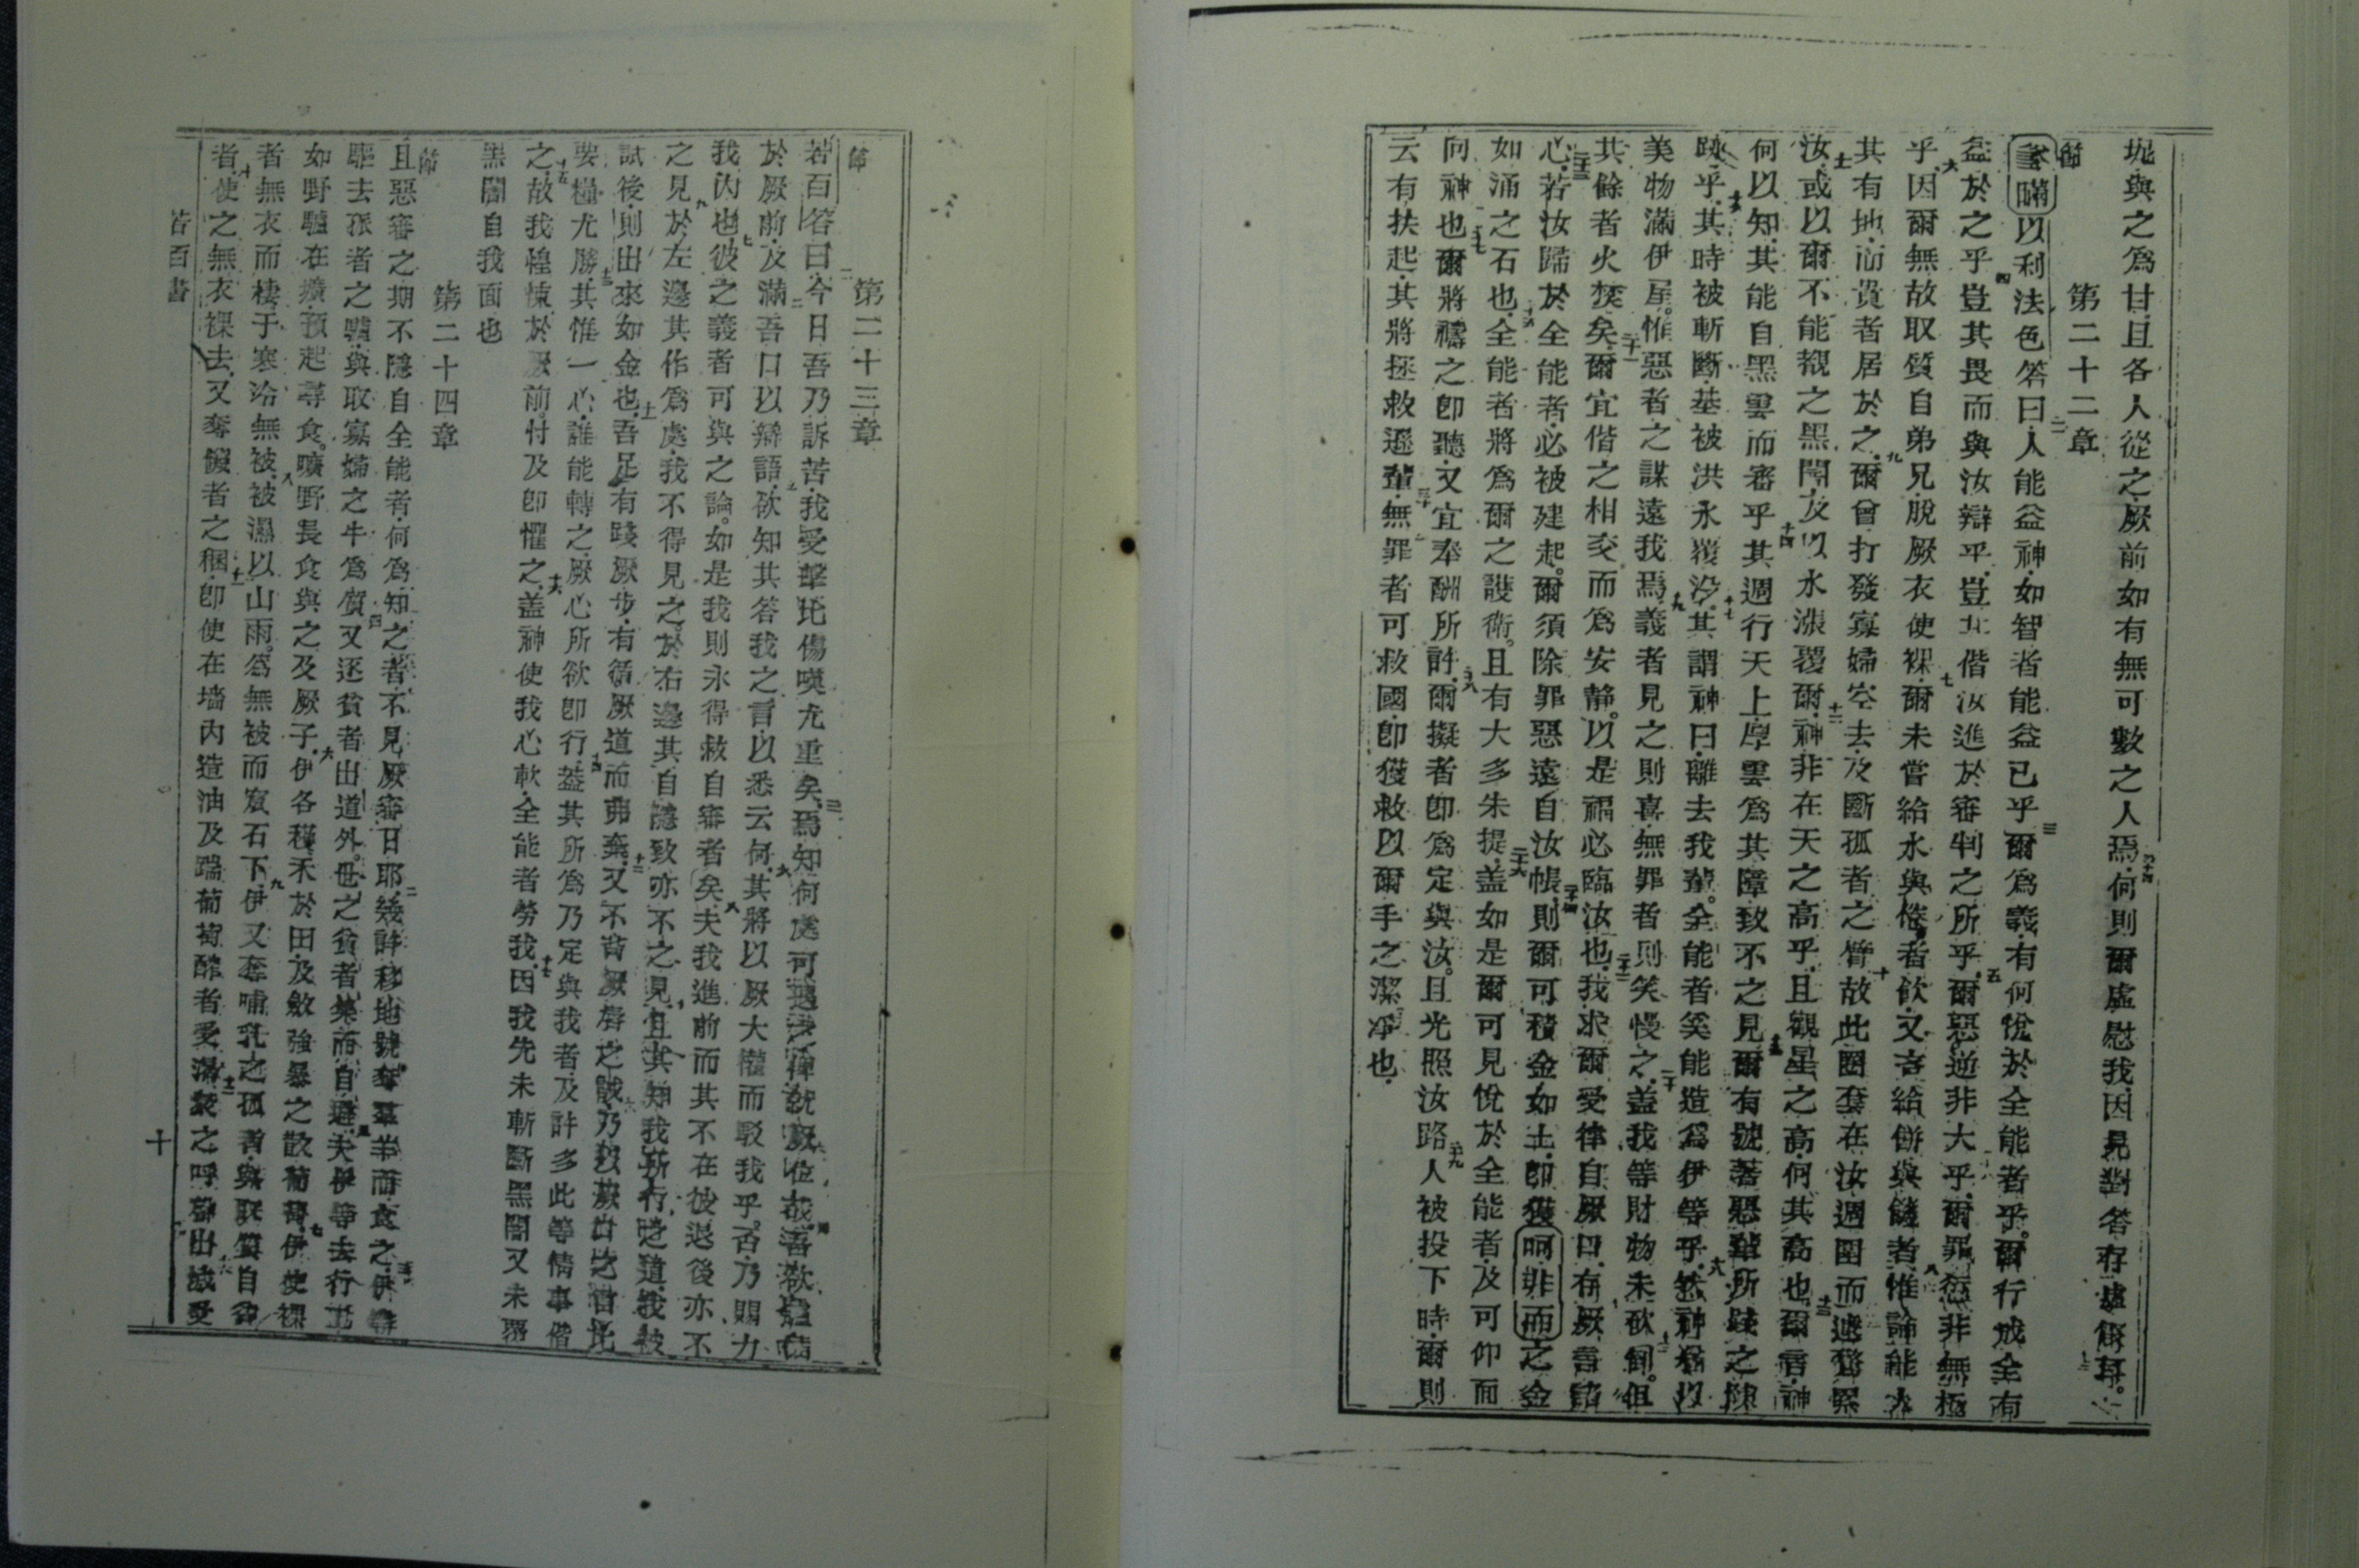 坭與之爲甘且各人從之厥前如有無可數之人焉何則爾虛慰我因見對答存虛假耳
第二十二章
節
以利法色答曰人能益神如智者能益已乎爾爲義有何悅於全能者乎爾行成全有
益於之乎豈其畏而與汝辯乎豈其偕汝進於審判之所乎爾惡逆非大乎爾罪愆非無極
乎因爾無故取質自弟兄脫厥衣使裸爾未嘗給水與倦者飲又吝給餅與饑者惟論能人
其有地而貴者居於之爾曾打發寡婦空去及斷孤者之臂故此圈套在汝週圍而遽驚
汝或以爾不能覩之黑闇及以水漲覆爾神非在天之高乎且觀星之高何其高也爾言神
何以知其能自黑雲而審乎其週行天上厚雲爲其障致不之見爾有號著惡輩所踐之
跡乎其時被斬斷基被洪水覆沒其謂神曰離去我輩全能者奚能造爲伊等乎然神以
美物滿伊屋惟惡者之謀遠我焉義者見之則喜無罪者則笑慢之蓋我等財物未砍倒但
其餘者火焚矣爾宜偕之相交而爲安靜以是福必臨汝也我求爾受律自厥口存厥言諸
心若汝歸於全能者必被建起爾須除罪惡遠自汝帳則爾可積金如土卽獲呵非而之金
如涌之石也全能者將爲爾之護衛且有大多朱提蓋如是爾可見悅於全能者及可仰面
向神也爾將禱之卽聽又宜奉酬所許爾擬者卽爲定與汝且光照汝路人被投下時爾則
云有扶起其將拯救遜輩無罪者可救國卽獲救以爾手之潔凈也
第二十三章
節
若百答曰今日吾乃訴苦我受擊比傷嘆尤重矣焉知何處可遇之就厥位哉吾欲
於厥前及滿吾口以辯語欲知其答我之言以悉云何其將以厥大權而駁我乎否乃賜力
我內也彼之義者可與之論如是我則永得救自審者矣夫我進前而其不在彼退後亦不
之見於左邊其作爲處我不得見之於右邊其自隱致亦不之見且其知我所行之道我被
試後則出來如金也吾足有踐厥步有循厥道而弗棄又不背厥唇之誡乃以厥口之言比
要糧尤勝其惟一心誰能轉之厥心所欲卽行蓋其所爲乃定與我者及許多此等情事偕
之故我惶悚於厥前忖及卽懼之蓋神使我心軟全能者勞我因我先未斬斷黑闇又未
黑闇自我面也
第二十四章
節
且惡審之期不隱自全能者何爲知之者不見厥審日耶幾許移地號奪羣羊而食之伊等
驅去孤者之驢與取寡婦之牛爲質又逐貧者出道外世之貧者集而自避夫伊等去行
如野驢在壙預起尋食曠野長食與之及厥子伊各穫禾於田及斂強暴之散葡萄伊使裸
者無衣而棲于寒冷無被被濕以山雨爲無被而宿石下伊又奪哺乳之孤者與取質自貧
者使之無衣裸去又奪饑者之稇卽使在墻內造油及踹葡萄醡者受渴之呼聲出城受
若百書
十